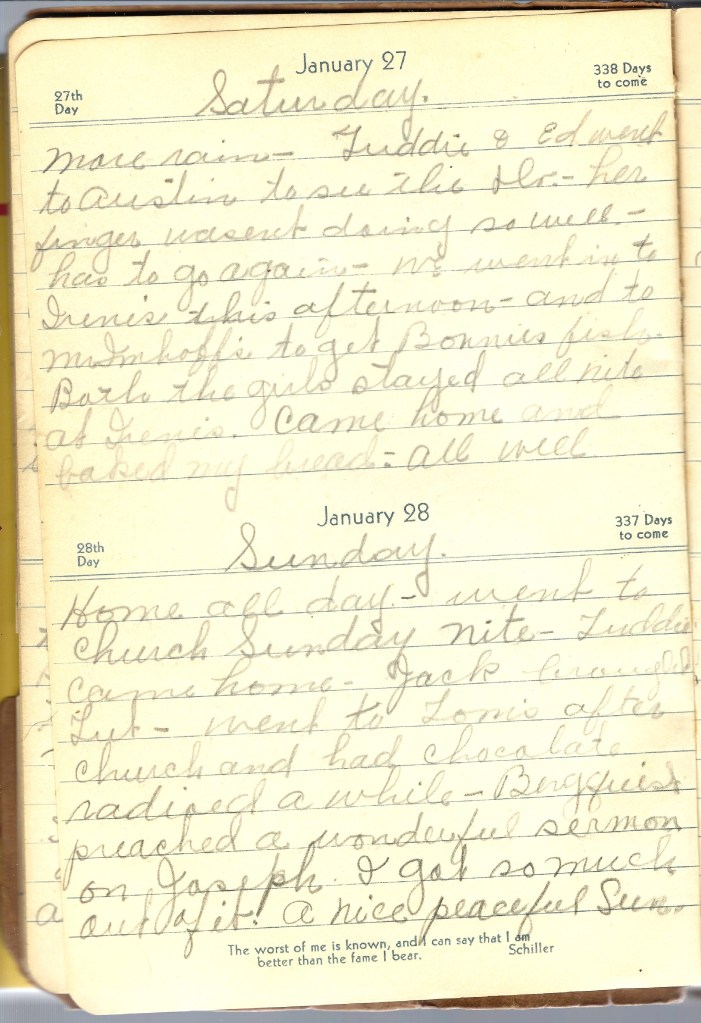 January 27
27th
Day
338 Days
to come
Saturday.
more rain - Tuddie & Ed went
to Austin to see the Dr. - her
finger wasent doing so well -
has to go again - we went in to
Irenes this afternoon - and to
Mr Imhoffs to get Bonnies fish.
Both the girls stayed all nite
at Irenes. Came home and
baked my bread - all well
January 28
28th
Day
337 Days
to come
Sunday.
Home all day - went to
church Sunday nite - Tuddie
came home - Jack brought
Tut - went to Toms after
church and had chocolate
radioed a while - Bergquist
preached a wonderful sermon
on Joseph. I got so much
out of it. A nice peaceful Sun.
The worst of me is known, and I can say that I am
better than the fame I bear.
Schiller